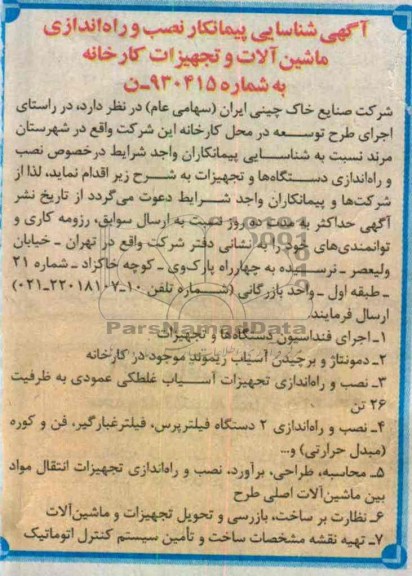 آگهی شناسایی پیمانکار نصب و راه‌اندازی
ماشین‌آلات و تجهیزات کارخانه
به شماره ۹۳۰۴۱۵-ن
شرکت صنایع خاک چینی ایران (سهامی عام) در نظر دارد، در راستای
اجرای طرح توسعه در محل کارخانه این شرکت واقع در شهرستان
مرند نسبت به شناسایی پیمانکاران واجد شرایط درخصوص نصب
و راه‌اندازی دستگاه‌ها و تجهیزات به شرح زیر اقدام نماید، لذا از
شرکت‌ها و پیمانکاران واجد شرایط دعوت می‌گردد از تاریخ نشر
آگهی حداکثر به مدت ده روز نسبت به ارسال سوابق، رزومه کاری و
توانمندی‌های خود را به نشانی دفتر شرکت واقع در تهران ـ خیابان
ولیعصر ـ نرسیده به چهارراه پارک‌وی ـ کوچه خاکزاد ـ شماره ۲۱
ـ طبقه اول ـ واحد بازرگانی (شماره تلفن ۱۰-۲۲۰۱۸۱۰۷-۰۲۱)
ارسال فرمایند.
ParsNamadData
۱ـ اجرای فنداسیون دستگاه‌ها و تجهیزات
۲ـ دمونتاژ و برچیدن آسیاب ریموند موجود در کارخانه
۳ـ نصب و راه‌اندازی تجهیزات آسیاب غلطکی عمودی به ظرفیت
۲۶ تن
۴ـ نصب و راه‌اندازی ۲ دستگاه فیلترپرس، فیلترغبارگیر، فن و کوره
(مبدل حرارتی) و...
۵ـ محاسبه، طراحی، برآورد، نصب و راه‌اندازی تجهیزات انتقال مواد
بین ماشین‌آلات اصلی طرح
۶ـ نظارت بر ساخت، بازرسی و تحویل تجهیزات و ماشین‌آلات
۷ـ تهیه نقشه مشخصات ساخت و تأمین سیستم کنترل اتوماتیک